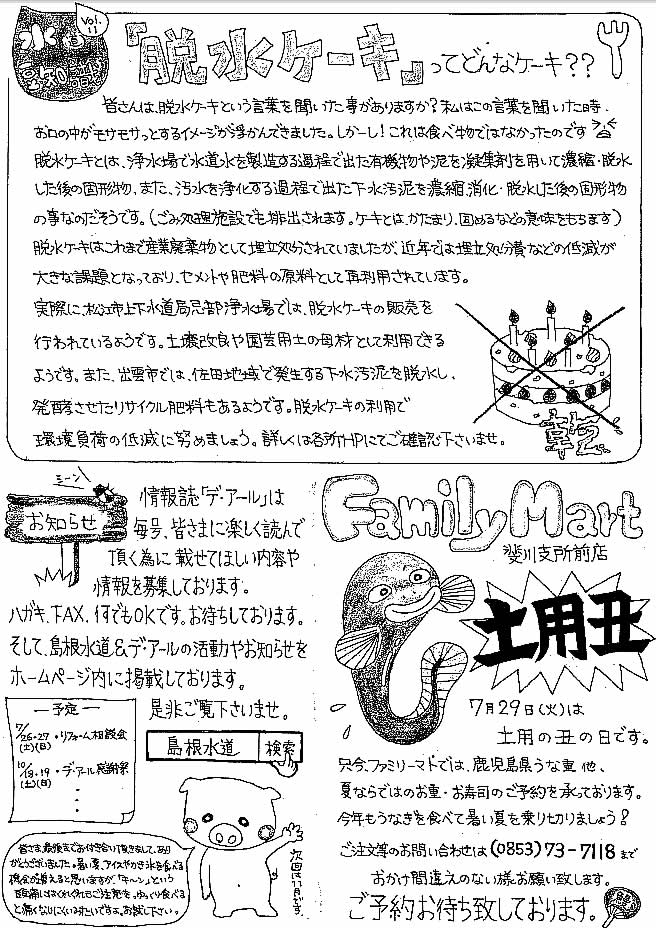 水道
豆知識
Vol.
11
「脱水ケーキ」ってどんなケーキ??
皆さんは、脱水ケーキという言葉を聞いた事がありますか?私はこの言葉を聞いた時、
お口の中がモサモサっとするイメージが浮かんできました。しかーし!これは食べ物ではなかったのです
脱水ケーキとは、浄水場で水道水を製造する過程で出た有機物や泥を凝集剤を用いて濃縮・脱水
した後の固形物、また、汚水を浄化する過程で出た下水汚泥を濃縮、消化・脱水した後の固形物
の事なのだそうです。(ごみ処理施設でも排出されます。ケーキとは、かたまり、固めるなどの意味をもちます)
脱水ケーキはこれまで産業廃棄物として埋立処分されていましたが、近年では埋立処分費などの低減が
大きな課題となっており、セメントや肥料の原料として再利用されています。
実際に、松江市上下水道局忌部浄水場では、脱水ケーキの販売を
行われているようです。土壌改良や園芸用土の母材として利用できる
ようです。また、出雲市では、佐田地域で発生する下水汚泥を脱水し、
発酵させたリサイクル肥料もあるようです。脱水ケーキの利用で
環境負荷の低減に努めましょう。詳しくは各所HPにてご確認下さいませ。
乾
ミーン
お知らせ
情報誌「デ・アール」は
毎号、皆さまに楽しく読んで
頂く為に載せてほしい内容や
情報を募集しております。
ハガキ、FAX、何でもOKです。お待ちしております。
そして、島根水道&デ・アールの活動やお知らせを
ホームページ内に掲載しております。
是非ご覧下さいませ。
島根水道 検索
予定
7/26・27 ・リフォーム相談会
(土)(日)
10/18・19 ・デ・アール感謝祭
(土)(日)
皆さま、最後までお付き合い頂きまして、あり
がとうございました。暑い夏、アイスやかき氷を食べる
機会が増えると思いますが、「キーン」という
頭痛にはくれぐれもご注意を。ゆっくり食べる
と痛くなりにくいみたいですよ。お試し下さい。
次回は11月です。
FamilyMart
斐川支所前店
土用丑
7月29日(火)は
土用の丑の日です。
只今、ファミリーマートでは、鹿児島県うな重 他、
夏ならではのお重・お寿司のご予約を承っております。
今年もうなぎを食べて暑い夏を乗り切りましょう!
ご注文等のお問い合わせは(0853)73-7118まで
おかけ間違えのない様お願い致します。
ご予約お待ち致しております。